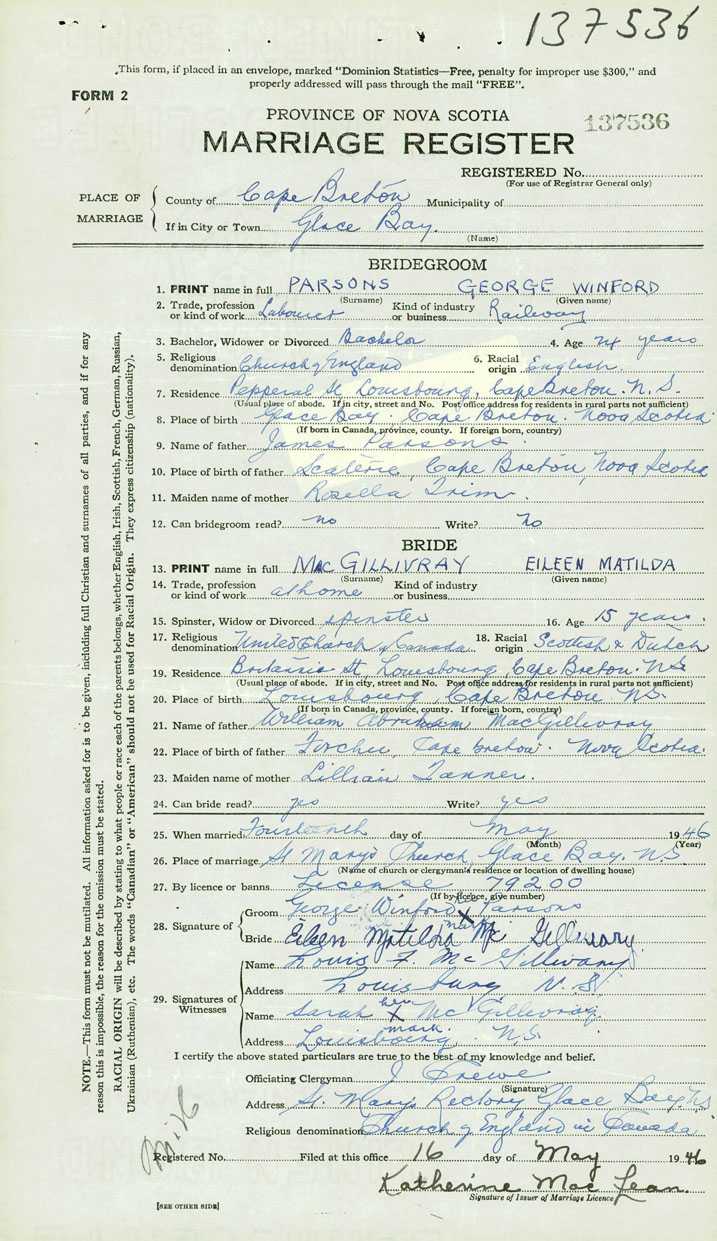 137536
This form, if placed in an envelope, marked "Dominion Statistics—Free, penalty for improper use $300," and
properly addressed will pass through the mail "FREE".
FORM 2
PROVINCE OF NOVA SCOTIA
137536
MARRIAGE REGISTER
REGISTERED No.
(For use of Registrar General only)
PLACE OF MARRIAGE
County of Cape Breton Municipality of
If in City or Town Glace Bay.
(Name)
BRIDEGROOM
1. PRINT name in full PARSONS GEORGE WINFORD
(Surname) (Given name)
2. Trade, profession or kind of work Labourer Kind of industry or business Railway
3. Bachelor, Widower or Divorced Bachelor 4. Age 24 years
5. Religious denomination Church of England 6. Racial origin English.
7. Residence Pepperal St, Louisbourg, Cape Breton. N.S.
(Usual place of abode. If in city, street and No. Post office address for residents in rural parts not sufficient)
8. Place of birth Glace Bay, Cape Breton. Nova Scotia
(If born in Canada, province, county. If foreign born, country)
9. Name of father James Parsons
10. Place of birth of father Scaterie, Cape Breton, Nova Scotia
11. Maiden name of mother Rosella Trim.
12. Can bridegroom read? no Write? no
BRIDE
13. PRINT name in full MacGILLIVRAY EILEEN MATILDA
(Surname) (Given name)
14. Trade, profession or kind of work at home Kind of industry or business
15. Spinster, Widow or Divorced spinster 16. Age 15 years.
17. Religious denomination United Church of Canada 18. Racial origin Scottish & Dutch
19. Residence Britannia St, Louisbourg, Cape Breton. N.S
(Usual place of abode. If in city, street and No. Post office address for residents in rural parts not sufficient)
20. Place of birth Louisbourg Cape Breton N.S.
(If born in Canada, province, county. If foreign born, country)
21. Name of father William Abraham MacGillivray
22. Place of birth of father Forchu, Cape breton. Nova Scotia.
23. Maiden name of mother Lillian Tanner.
24. Can bride read? yes Write? yes
25. When married Fourteenth day of May 1946
(Month) (Year)
26. Place of marriage St Mary's Church, Glace Bay. N.S
(Name of church or clergyman's residence or location of dwelling house)
27. By licence or banns License 79200
(If by licence, give number)
28. Signature of
Groom George Winford X Parsons
mark
Bride Eileen Matilda Mc Gillivary
29. Signatures of Witnesses
Name Louis F. McGillivary
Address Louisburg N.S.
Name Sarah her X mark McGillivray.
Address Louisbourg N.S.
I certify the above stated particulars are true to the best of my knowledge and belief.
Officiating Clergyman J Frewe
(Signature)
Address St. Mary's Rectory Glace Bay N.S
Religious denomination Church of England in Canada
Registered No. Filed at this office 16 day of May 1946
Katherine MacLean.
Signature of Issuer of Marriage Licence
[SEE OTHER SIDE]
NOTE.—This form must not be mutilated. All information asked for is to be given, including full Christian and surnames of all parties, and if for any
reason this is impossible, the reason for the omission must be stated.
RACIAL ORIGIN will be described by stating to what people or race each of the parents belongs, whether English, Irish, Scottish, French, German, Russian,
Ukrainian (Ruthenian), etc. The words "Canadian" or "American" should not be used for Racial Origin. They express citizenship (nationality).